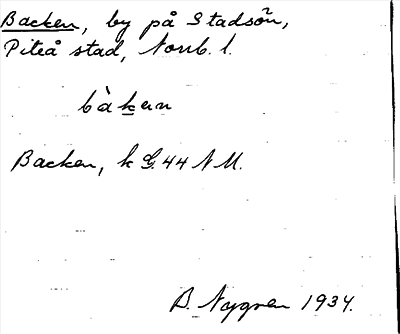 Backen, by på Stadsön,
Piteå stad, Norrb. l.
bàken
Backen, k G.44 N M.
B. Nygren 1934.